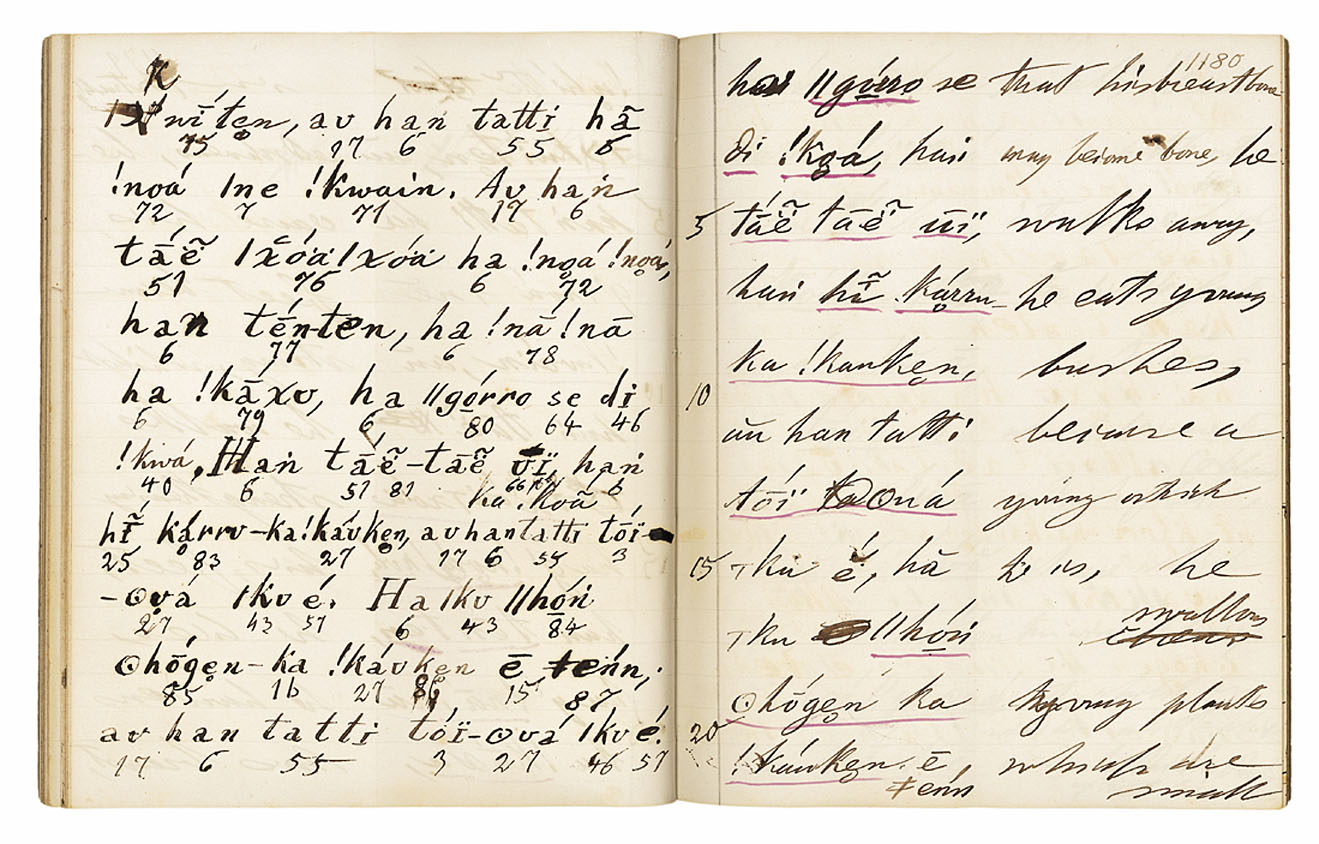 K
ĩten, au han tatti hã
15 17 6 55 6
!noá ǀne !kwain. Au han
72 7 71 17 6
tắẽ ǀxóäǀxóä ha !noá !noá,
51 76 6 72
han ténten, ha !nā !nā
6 77 6 78
ha !kāxu, ha ǁgórro se di
6 79 6 80 64 46
!kwá, Han tắẽ-tãẽ ūï, han
40 6 51 81 6
ka !koã
hĩ kárru-ka!káuken, au han tatti tóï-
25 83 27 17 6 55 3
-ʘuá ǀku é. Ha ǀku ǁhóṅ
27 43 57 6 43 84
ʘhōgen-ka !káuken ē ǂenn,
85 16 27 86 15 87
au han tatti tóï-ʘuá ǀku é.
17 6 55 3 27 46 57
1180
ǁgórro se that his breastbone
di !kgá, han may become bone, he
5 tắẽ tãẽ ūï, walks away,
han hĩ kárru- he eats young
ka !kauken, bushes,
10
au han tatti because a
tóï ʘuá young ostrich
15 ǀku é, hā he is, he
swallows
ǀku ǁhóṅ
ʘhōgen ka young plants
20
!káuken ē, which are
ǂenn small